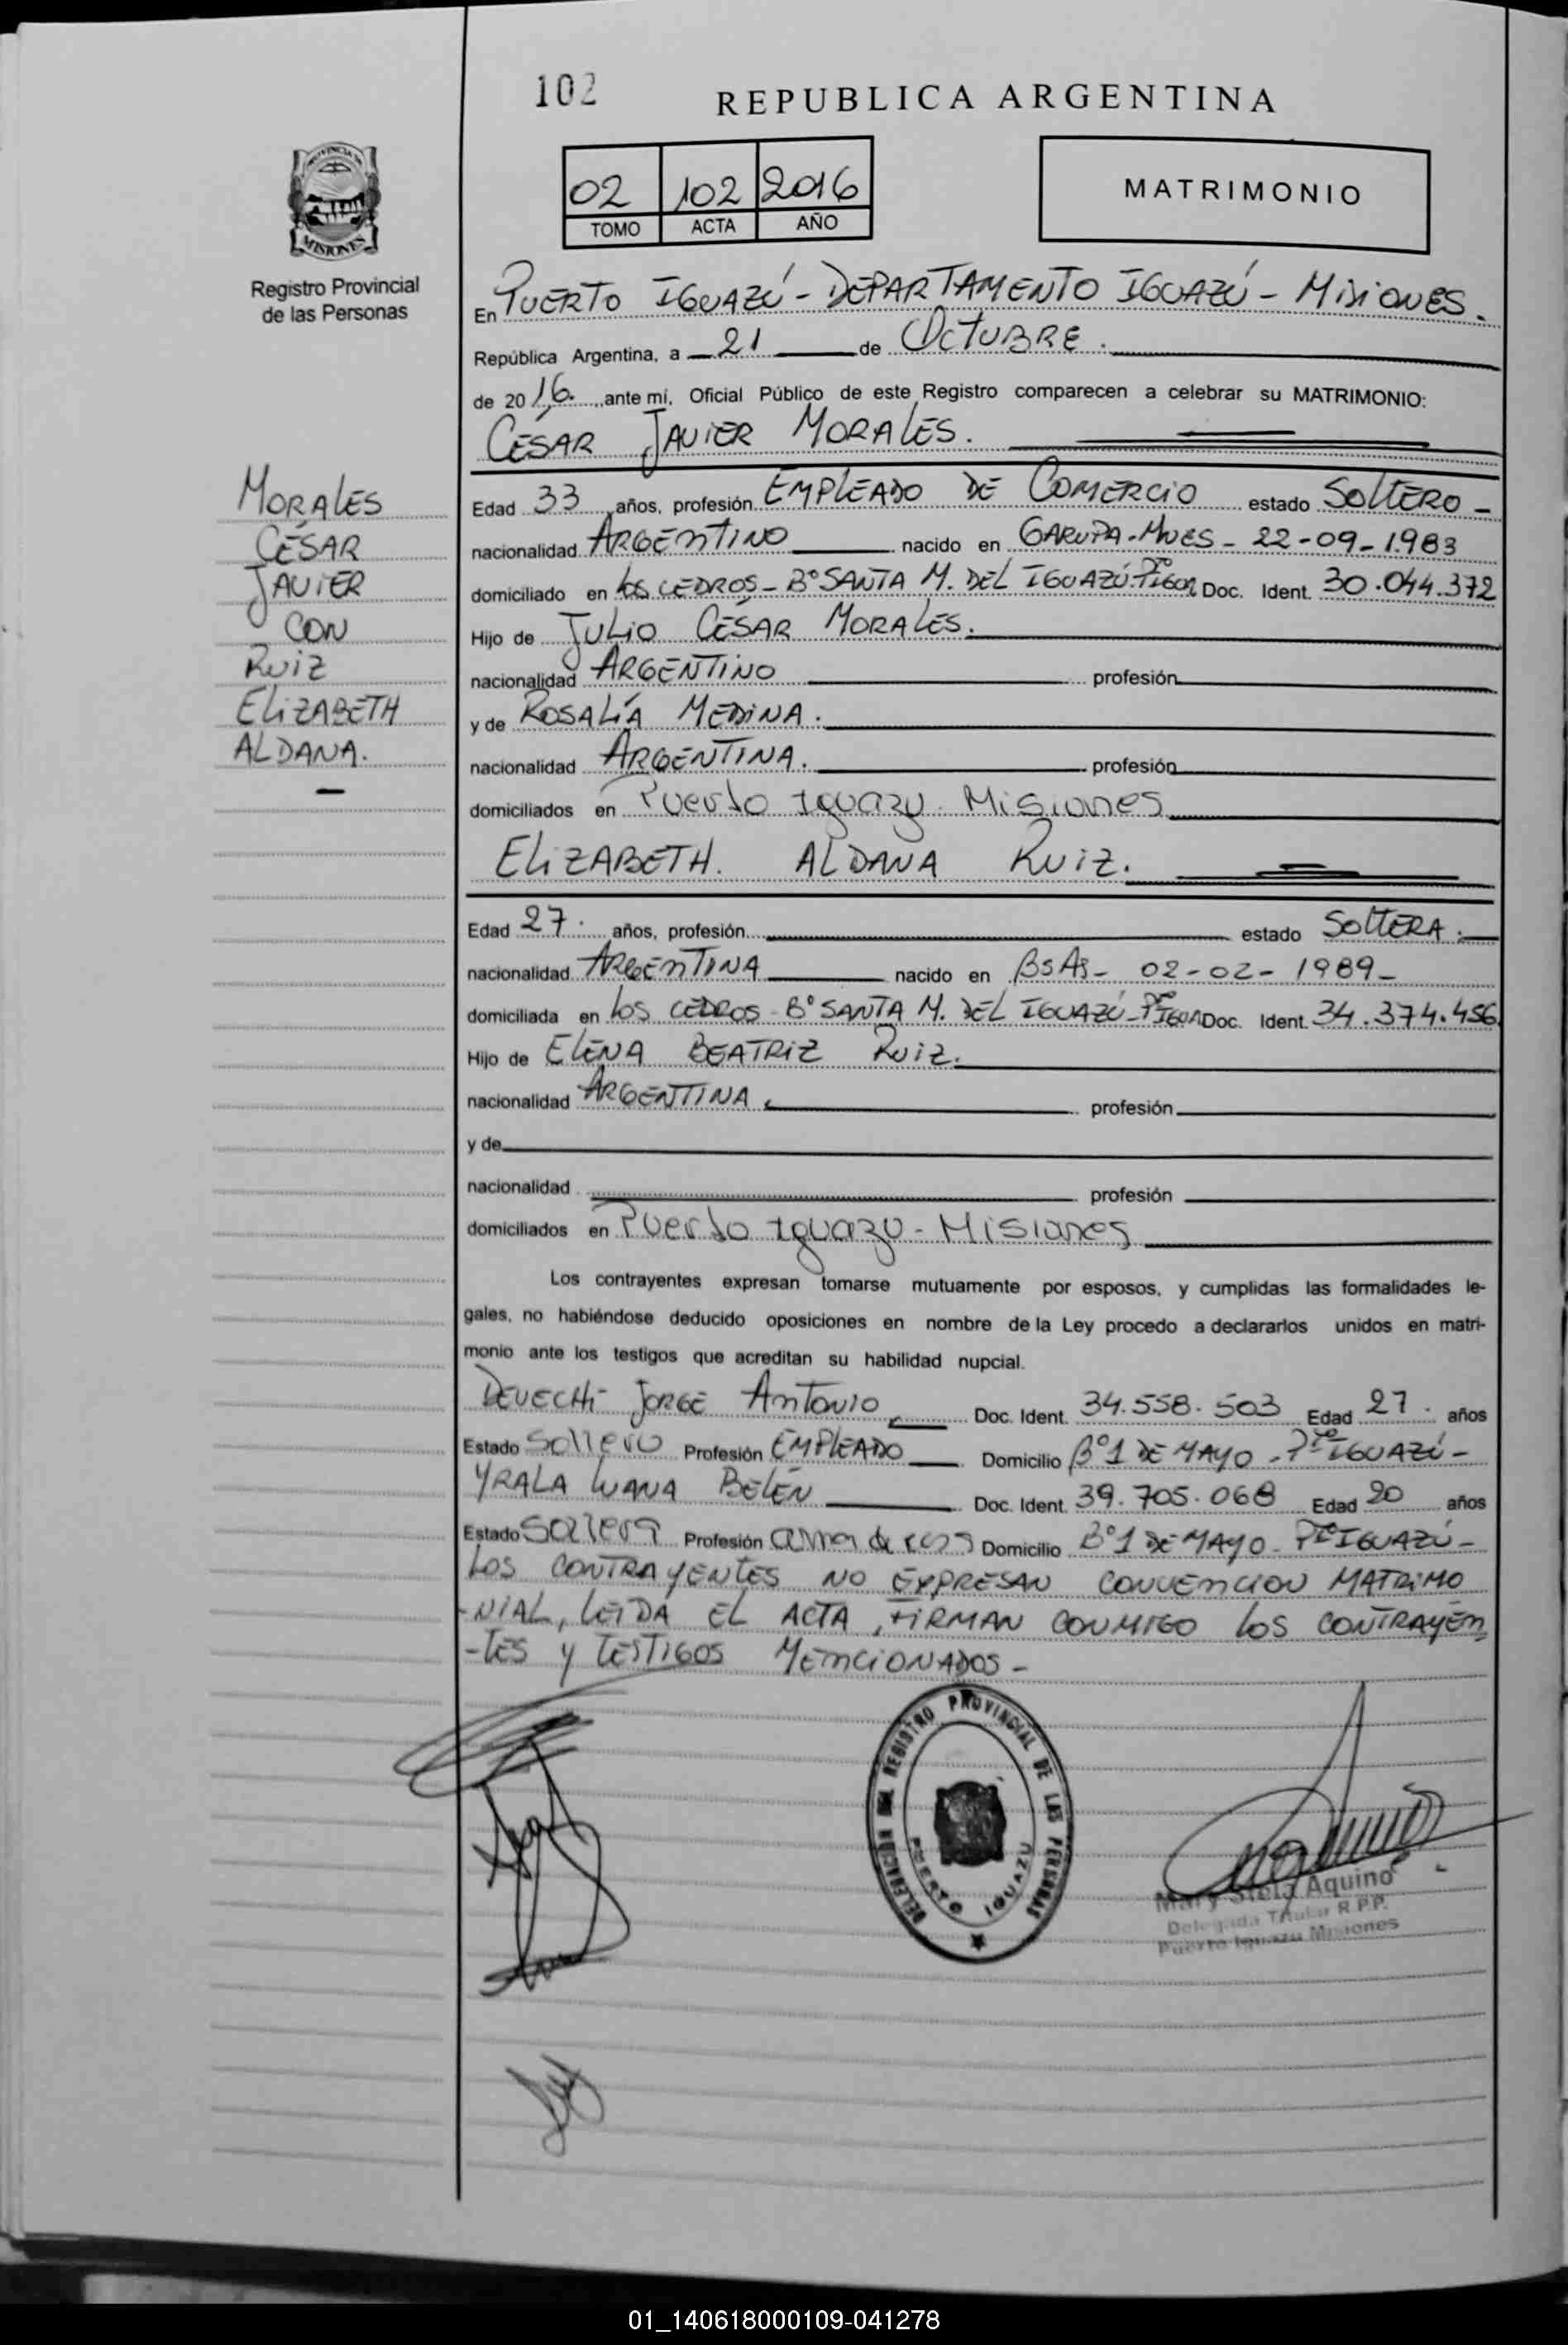 102
REPUBLICA ARGENTINA
PROVINCIA DE
MISIONES
Registro Provincial
de las Personas
02 102 2016
TOMO ACTA AÑO
MATRIMONIO
En PUERTO IGUAZÚ - DEPARTAMENTO IGUAZÚ - MISIONES.
República Argentina, a 21 de OCTUBRE.
de 2016. ante mí, Oficial Público de este Registro comparecen a celebrar su MATRIMONIO:
CÉSAR JAVIER MORALES.
MORALES
CÉSAR
JAVIER
CON
RUIZ
ELIZABETH
ALDANA.
Edad 33 años, profesión EMPLEADO DE COMERCIO estado SOLTERO -
nacionalidad ARGENTINO nacido en GARUPA - MNES - 22-09-1983
domiciliado en LOS CEDROS - B° SANTA M. DEL IGUAZÚ - Doc. Ident. 30.044.372
Hijo de JULIO CÉSAR MORALES.
nacionalidad ARGENTINO profesión
y de ROSALÍA MEDINA.
nacionalidad ARGENTINA. profesión
domiciliados en Puerto Iguazu - Misiones
ELIZABETH. ALDANA RUIZ.
Edad 27. años, profesión estado SOLTERA.
nacionalidad ARGENTINA nacido en BSAS - 02-02-1989 -
domiciliada en LOS CEDROS - B° SANTA M. DEL IGUAZÚ - Doc. Ident. 34.374.456
Hijo de ELENA BEATRIZ RUIZ.
nacionalidad ARGENTINA. profesión
y de
nacionalidad profesión
domiciliados en Puerto Iguazu - Misiones
Los contrayentes expresan tomarse mutuamente por esposos, y cumplidas las formalidades le-
gales, no habiéndose deducido oposiciones en nombre de la Ley procedo a declararlos unidos en matri-
monio ante los testigos que acreditan su habilidad nupcial.
DEVECHI JORGE ANTONIO Doc. Ident. 34.558.503 Edad 27. años
Estado Soltero Profesión EMPLEADO Domicilio B° 1 DE MAYO - Pto IGUAZÚ -
YRALA LUANA BELÉN Doc. Ident. 39.705.068 Edad 20 años
Estado Soltera Profesión ama de casa Domicilio B° 1 DE MAYO - Pto IGUAZÚ -
LOS CONTRAYENTES NO EXPRESAN CONVENCION MATRIMO
-NIAL, LEIDA EL ACTA, FIRMAN CONMIGO LOS CONTRAYEN
-TES Y TESTIGOS MENCIONADOS -
DELEGACION DEL REGISTRO PROVINCIAL DE LAS PERSONAS
PUERTO IGUAZU
Mary Stela Aquino
Delegada Titular R.P.P.
Puerto Iguazu Misiones
01_140618000109-041278